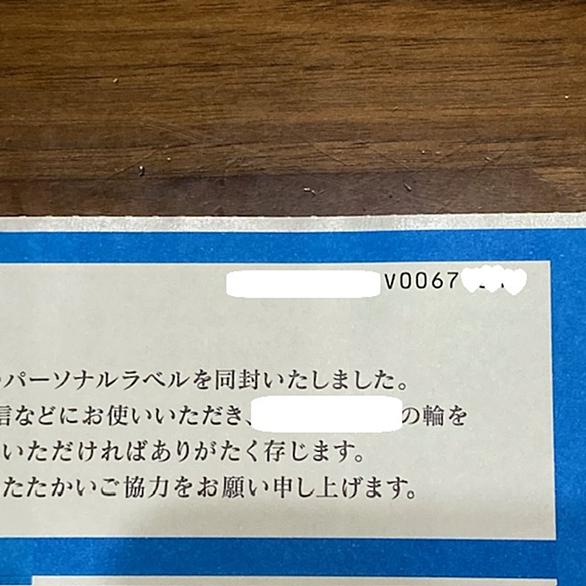 V0067
パーソナルラベルを同封いたしました。
信などにお使いいただき、の輪を
いただければありがたく存じます。
たたかいご協力をお願い申し上げます。